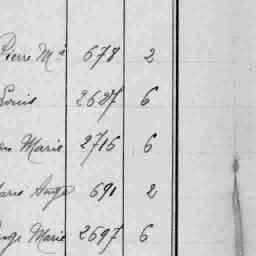 Pierre Mie 678 2
Louis 2687 6
Marie 2716 6
Marie Ange 691 2
Ange Marie 2697 6